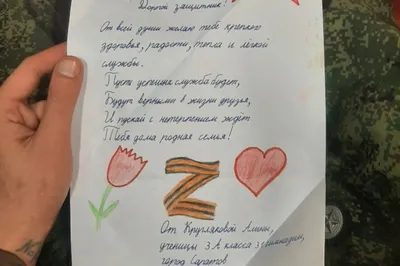 Дорогой защитник!
От всей души желаю тебе крепкого
здоровья, радости, тепла и легкой
службы.
Пусть успешна служба будет,
Будут верными в жизни друзья,
И пускай с нетерпением ждёт
Тебя дома родная семья!
Z
От Кругляковой Алины,
ученицы 3А класса
город Саратов